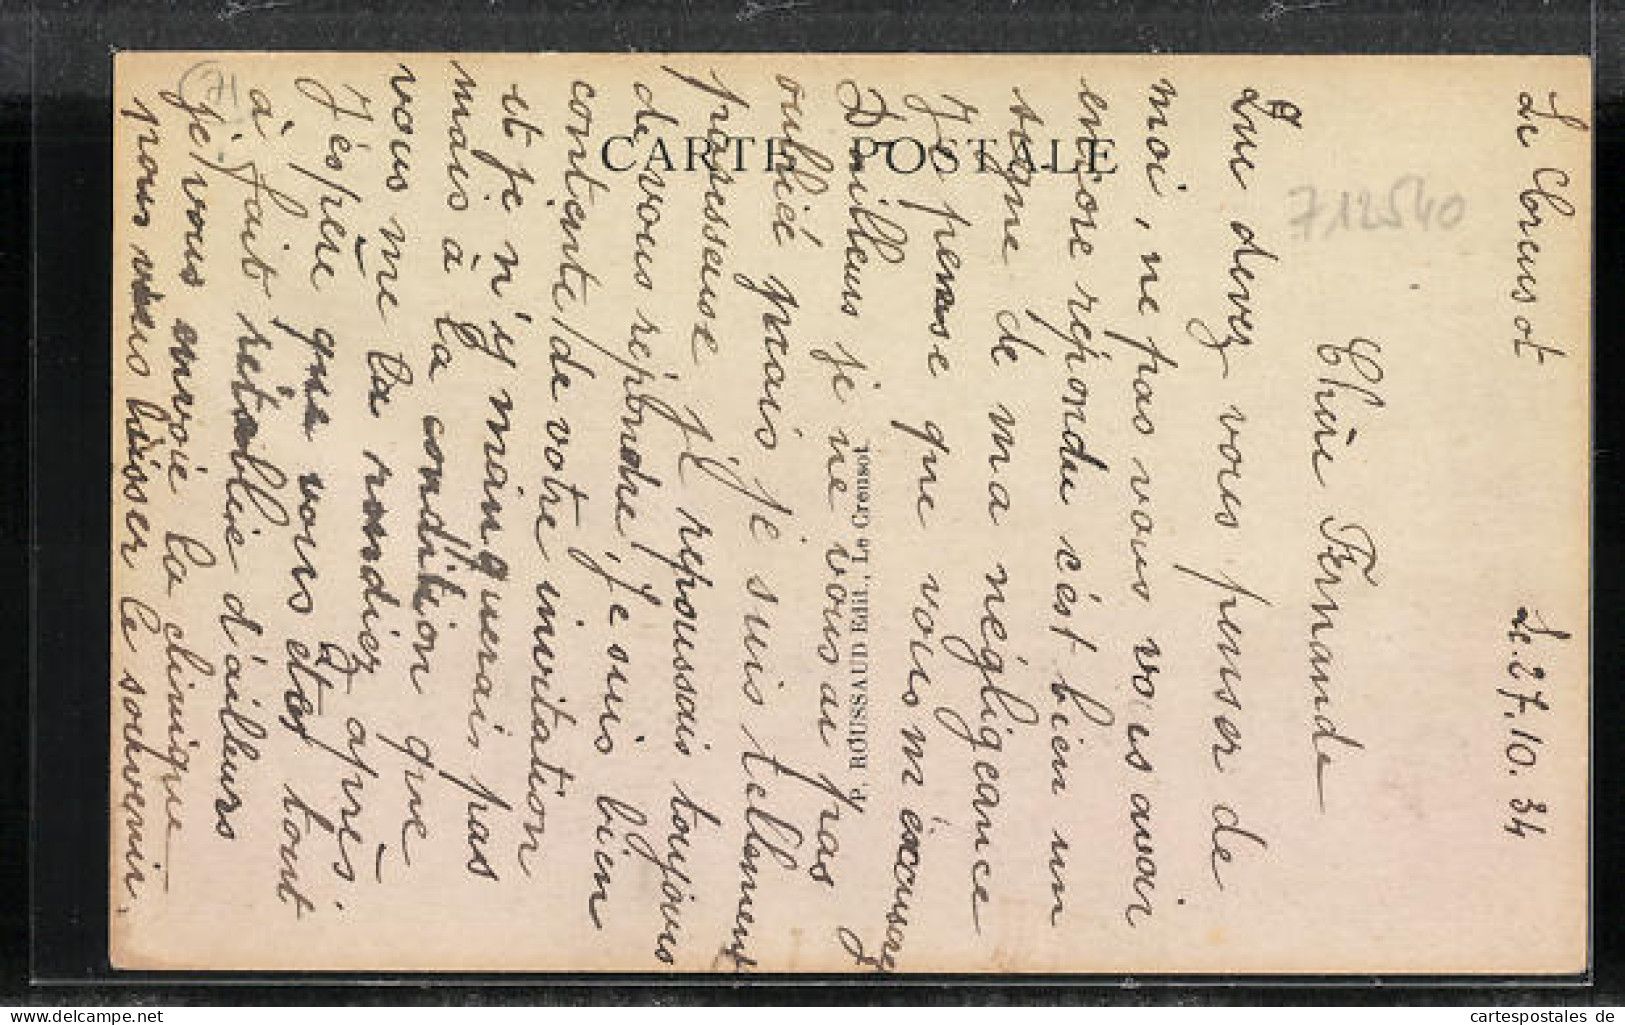 Le Creusot Le 27.10.34
Chère Fernande
Que devez vous penser de
moi, ne pas vous vois avoir
encore répondu c'est bien un
signe de ma négligeance
Je pense que vous m'éxcuserez
D'ailleurs je ne vous ai pas
oublié mais je suis tellement
paresseuse je repoussais toujours
de vous répondre. Je suis bien
contente de votre invitation
et je n'y manquerais pas
mais à la condition que
vous me la rendiez après
J'éspère que vous êtes tout
à fait rétablie d'ailleurs
je vous envoie la clinique
pour vous laisser le souvenir.
CARTE POSTALE
P. ROUSSAUD Edit., Le Creusot
712540
71
www.cartespostales.de
cartespostales de